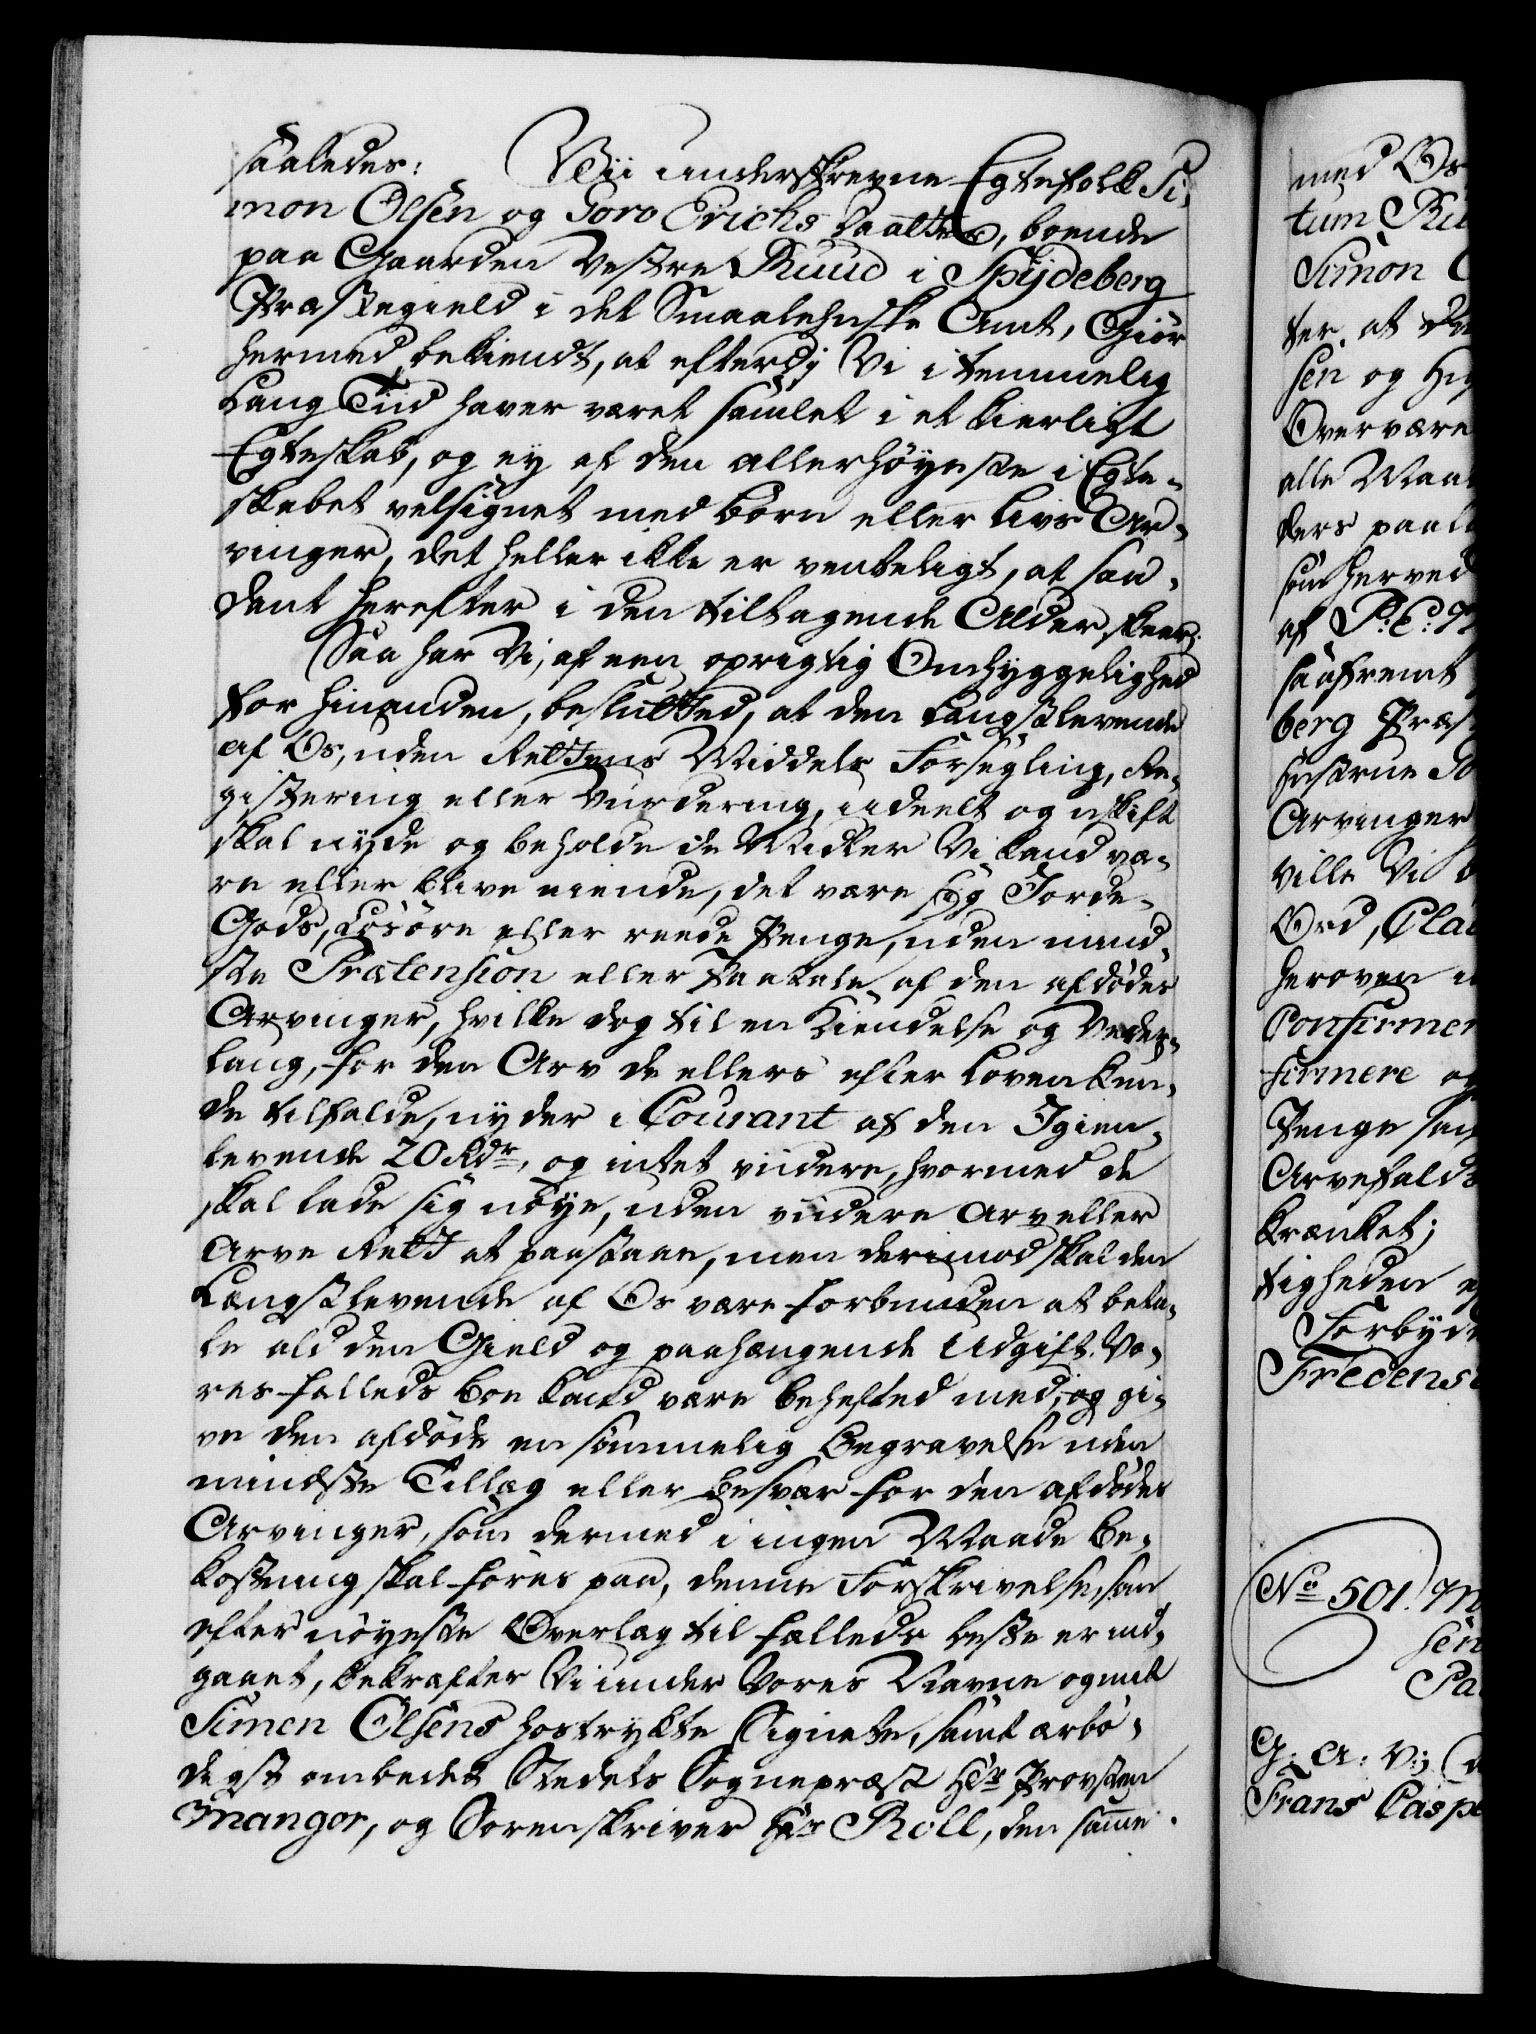 saaledes: Vii underskrevne Egtefolk Si-
mon Olsen og Goro Erichs Daatter, boende
paa Gaarden Vestre Ruud i Spydeberg
Præstegield i det Smaalehnske Amt, Giør
hermed bekiendt, at efterdj Vi i temmelig
Lang Tiid haver været samlet i et kierligt
Egteskab, og ey af den allerhøyeste i Egte-
skabet velsignet med børn eller Livs Ar-
vinger, det heller ikke er venteligt, at saa-
dant herefter i den tiltagende Alder skeer;
Saa har Vi, af een oprigtig Omhyggelighed
for hinanden, beslutted, at den Længstlevende
af Os, uden Rettens Middels Forsegling, Re-
gistering eller Vurdering, udeelt og uskift
skal nyde og beholde de Midler Vi kand væ-
re eller blive eiende, det være sig Jorde-
Gods, Løsøre eller reede Penge, uden mind-
ste Prætension eller Paatale af den afdødes
Arvinger, hvilke dog til en Kiendelse og Veder-
laug, for den Arv de ellers efter Loven kun-
de tilfalde, nyder i Courant af den Igien-
levende 20 Rdr, og intet viidere, hvormed de
skal lade sig nøye, uden viidere Arv eller
Arve Rett at paastaae, men derimod skal den
Længstlevende af Os være forbunden at beta-
le ald den Gield og paahængende Udgift Vo-
res fælleds Boe kand være behefted med, og gi-
ve den afdøde en sømmelig Begravelse uden
mindste Tillæg eller Besvær for den afdødes
Arvinger, som dermed i ingen Maade Be-
kostning skal føres paa, denne Forskrivelse, som
efter nøyeste Overlæg til fælleds beste er ind-
gaaet, bekræfter Vi under Vores Navne og mit
Simen Olsens hostrykte Signete, samt ærbø-
digst ombedet Stedets Sognepræst Hr Provsten
Mangor, og Sorenskriver Hr Roll, den samme
med Os
tum Ru
Simon
ter, at de
sen og hi
Overvære
alle Maa
ders paa
som herved
af P: C:
saafremt
berg Præs
hustrue Go
Arvinger
ville Vi
Ord, Cla
heroven
Confirmer
firmere og
Penge
Arvefald
krænket;
tigheden
Forbyde
Fredens
No 501.
sen
Pa
G: A: V:
Frans Caspe